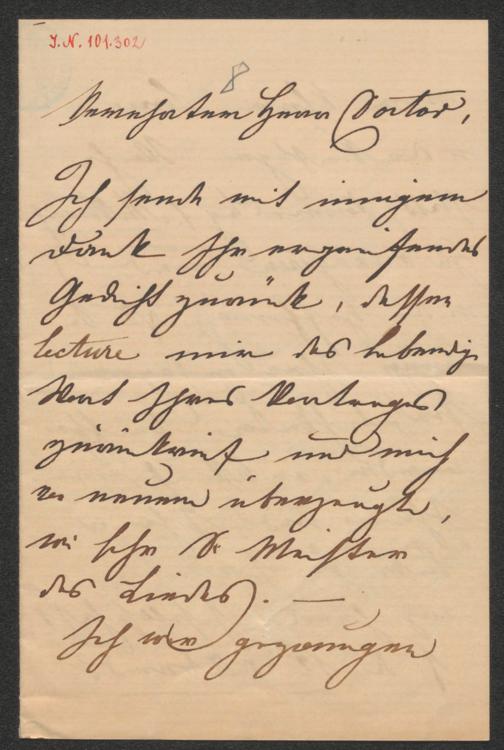 J.N. 101.302
8
Verehrter Herr Doctor,
Ich sende mit innigem
Dank Ihr ergreifendes
Gedicht zurück, dessen
lecture mir das lebendige
Wort Ihres Vortrages
zurückrief und mich
von neuem überzeugte,
wie sehr Sie Meister
des Liedes). —
Ich war gezwungen